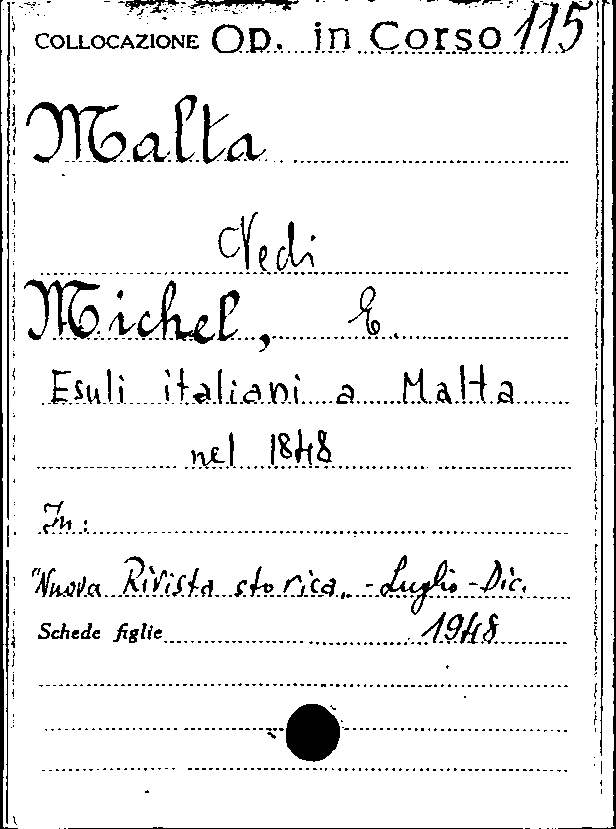 COLLOCAZIONE Op. in Corso 115
Malta
Vedi
Michel, E.
Esuli italiani a Malta
nel 1848
In:
"Nuova Rivista storica„ - Luglio - Dic.
Schede figlie 1948